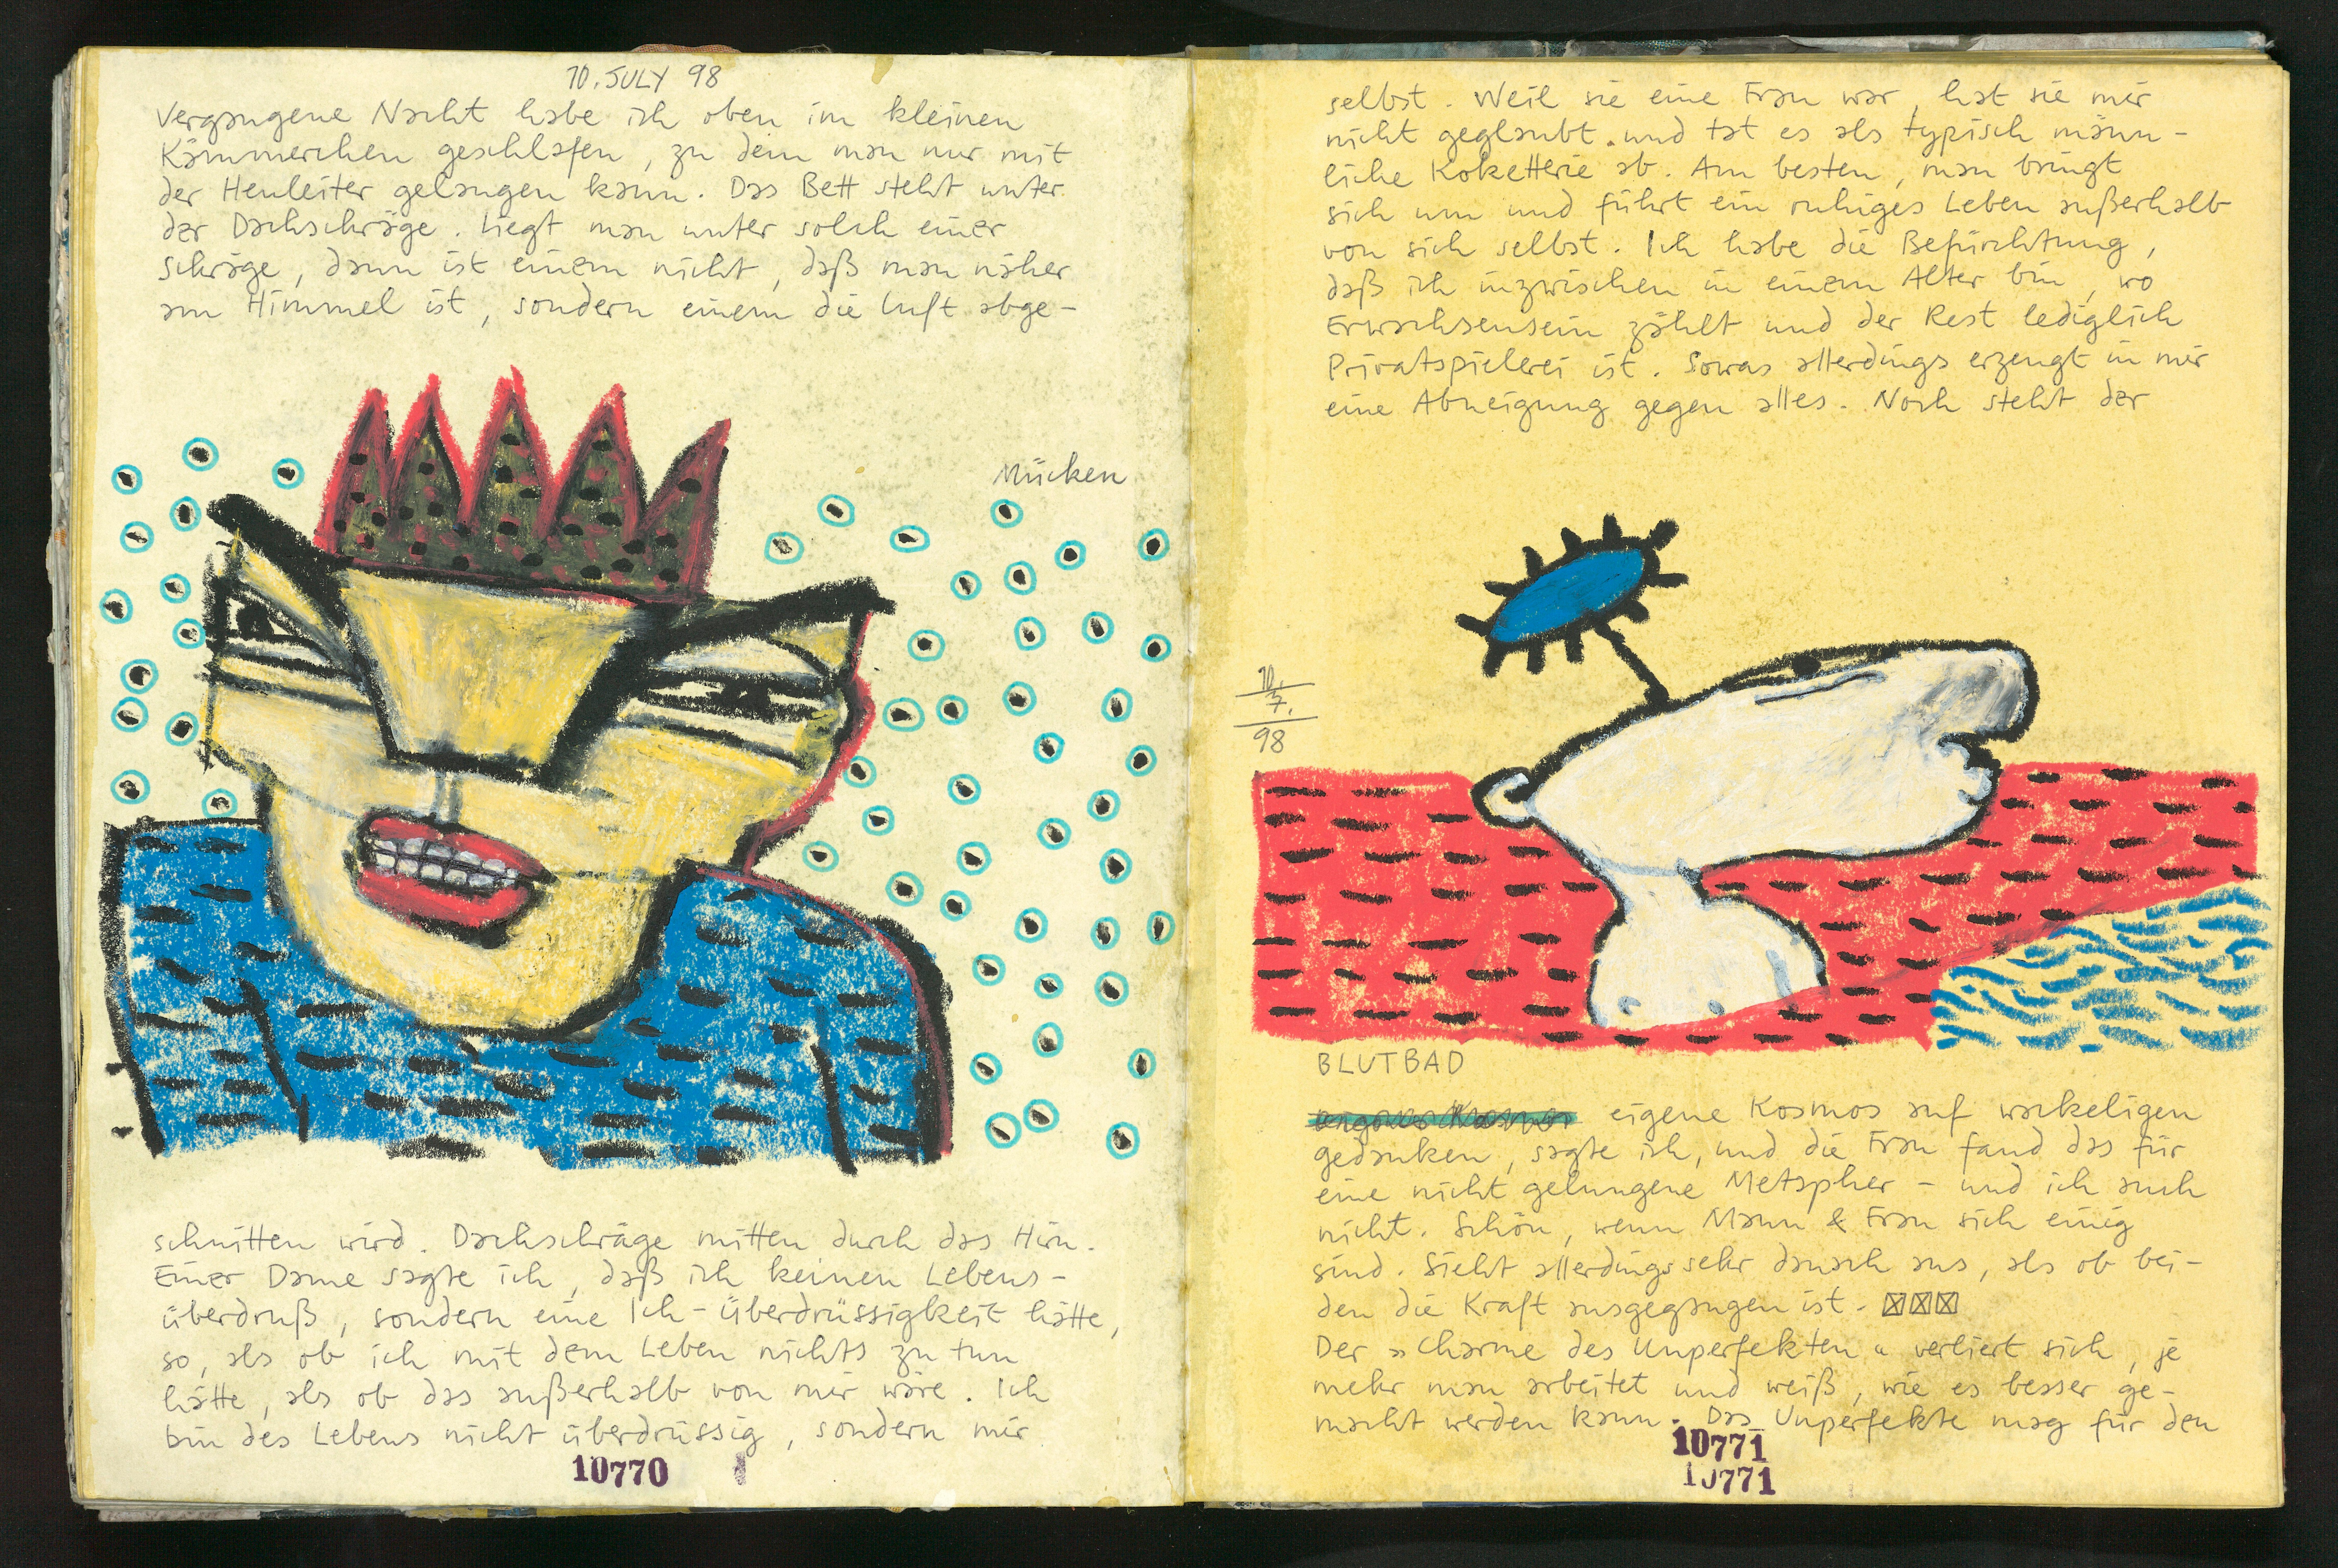 10. JULY 98
Vergangene Nacht habe ich oben im kleinen
Kämmerchen geschlafen, zu dem man nur mit
der Heuleiter gelangen kann. Das Bett steht unter
der Dachschräge. Liegt man unter solch einer
Schräge, dann ist einem nicht, daß man näher
am Himmel ist, sondern einem die Luft abge-
Mücken
schnitten wird. Dachschräge mitten durch das Hirn.
Einer Dame sagte ich, daß ich keinen Lebens-
überdruß, sondern eine Ich-Überdrüssigkeit hätte,
so, als ob ich mit dem Leben nichts zu tun
hätte, als ob das außerhalb von mir wäre. Ich
bin des Lebens nicht überdrüssig, sondern mir
10770
selbst. Weil sie eine Frau war, hat sie mir
nicht geglaubt und tat es als typisch männ-
liche Koketterie ab. Am besten, man bringt
sich um und führt ein ruhiges Leben außerhalb
von sich selbst. Ich habe die Befürchtung,
daß ich inzwischen in einem Alter bin, wo
Erwachsensein zählt und der Rest lediglich
Privatspielerei ist. Sowas allerdings erzeugt in mir
eine Abneigung gegen alles. Noch steht der
10.
7.
98
BLUTBAD
eigene Kosmos auf wackeligen
gedanken, sagte ich, und die Frau fand das für
eine nicht gelungene Metapher – und ich auch
nicht. Schön, wenn Mann & Frau sich einig
sind. Sieht allerdings sehr danach aus, als ob bei-
den die Kraft ausgegangen ist. ☒☒☒
Der »Charme des Unperfekten« verliert sich, je
mehr man arbeitet und weiß, wie es besser ge-
macht werden kann. Das Unperfekte mag für den
10771
10771